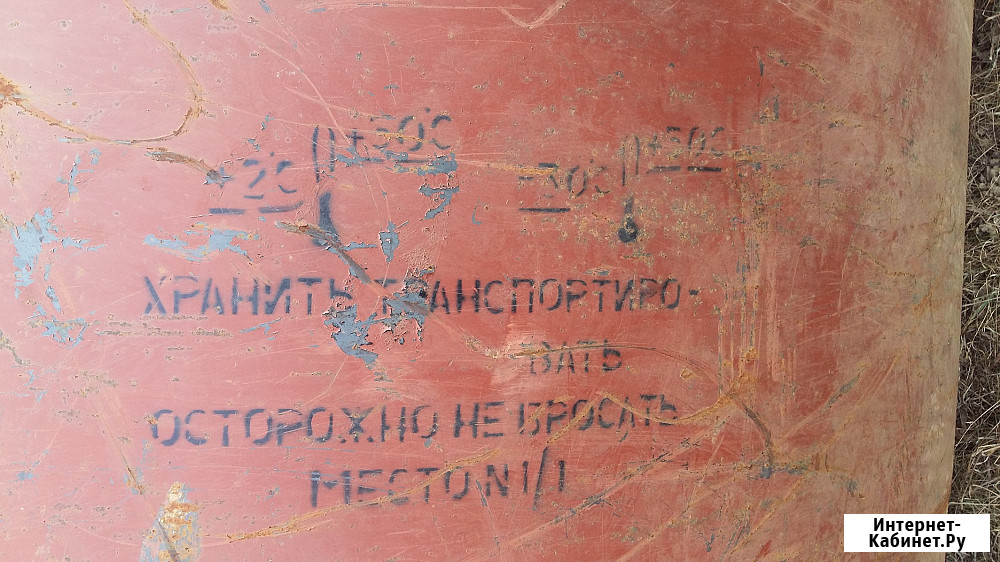 +50°C +50°C
-30°C
ХРАНИТЬ ТРАНСПОРТИРО-
ВАТЬ
ОСТОРОЖНО НЕ БРОСАТЬ
МЕСТО N1/1
Интернет-
Кабинет.Ру